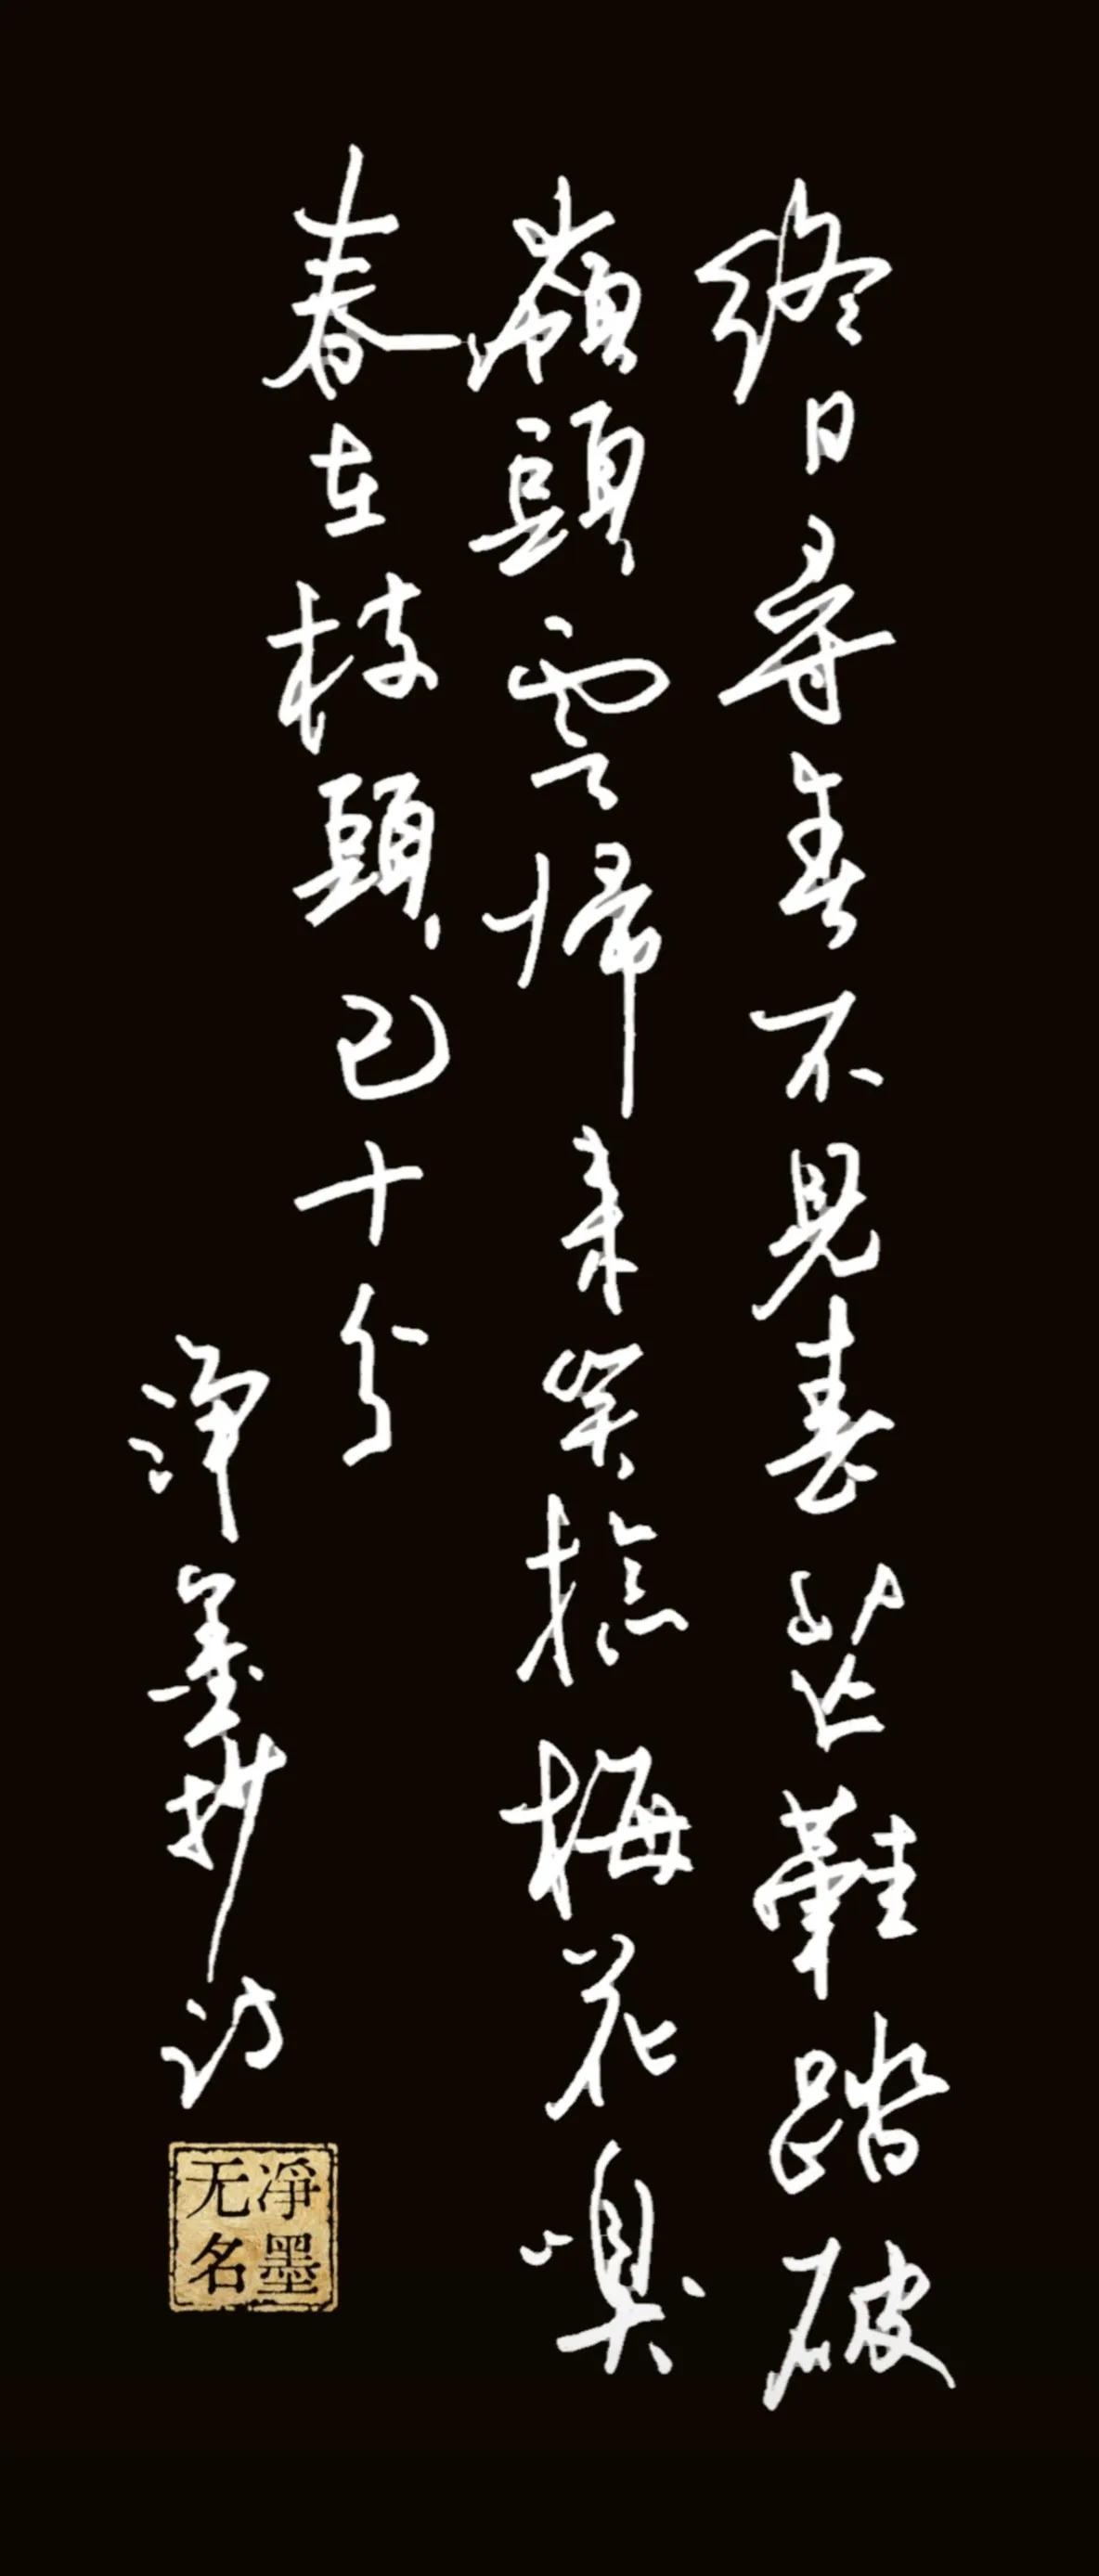 終日尋春不見春芒鞋踏破
嶺頭雲歸来笑捻梅花嗅
春在枝頭已十分
淨墨抄訪
净墨
无名